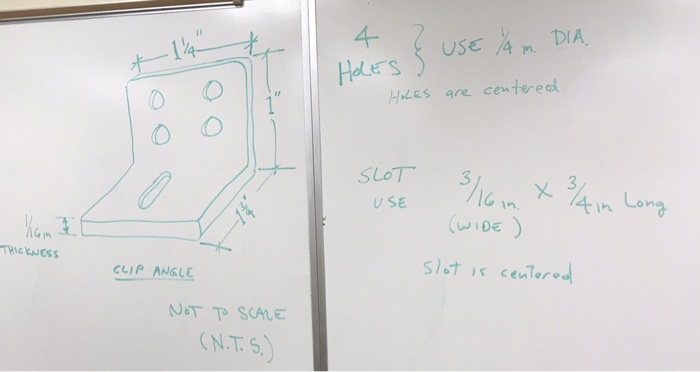 1 1/4"
1"
1 3/4"
1/16 in
THICKNESS
CLIP ANGLE
NOT TO SCALE
(N.T.S.)
4
HOLES } USE 1/4 in. DIA.
HOLES are centered
SLOT
USE
3/16 in. X 3/4 in Long
(WIDE)
Slot is centered